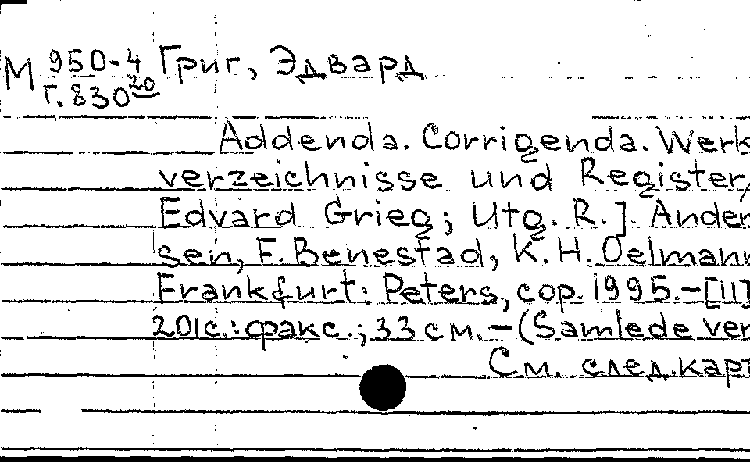 М 950-4 Григ, Эдвард
Г.830 20
Addenda. Corrigenda. Werk
verzeichnisse und Register/
Edvard Grieg; Utg. R.J. Ander
sen, F. Benestad, K.H. Oelmann
Frankfurt: Peters, cop. 1995.-[11]
201с.: факс.; 33 см. - (Samlede ver
См. след. карт